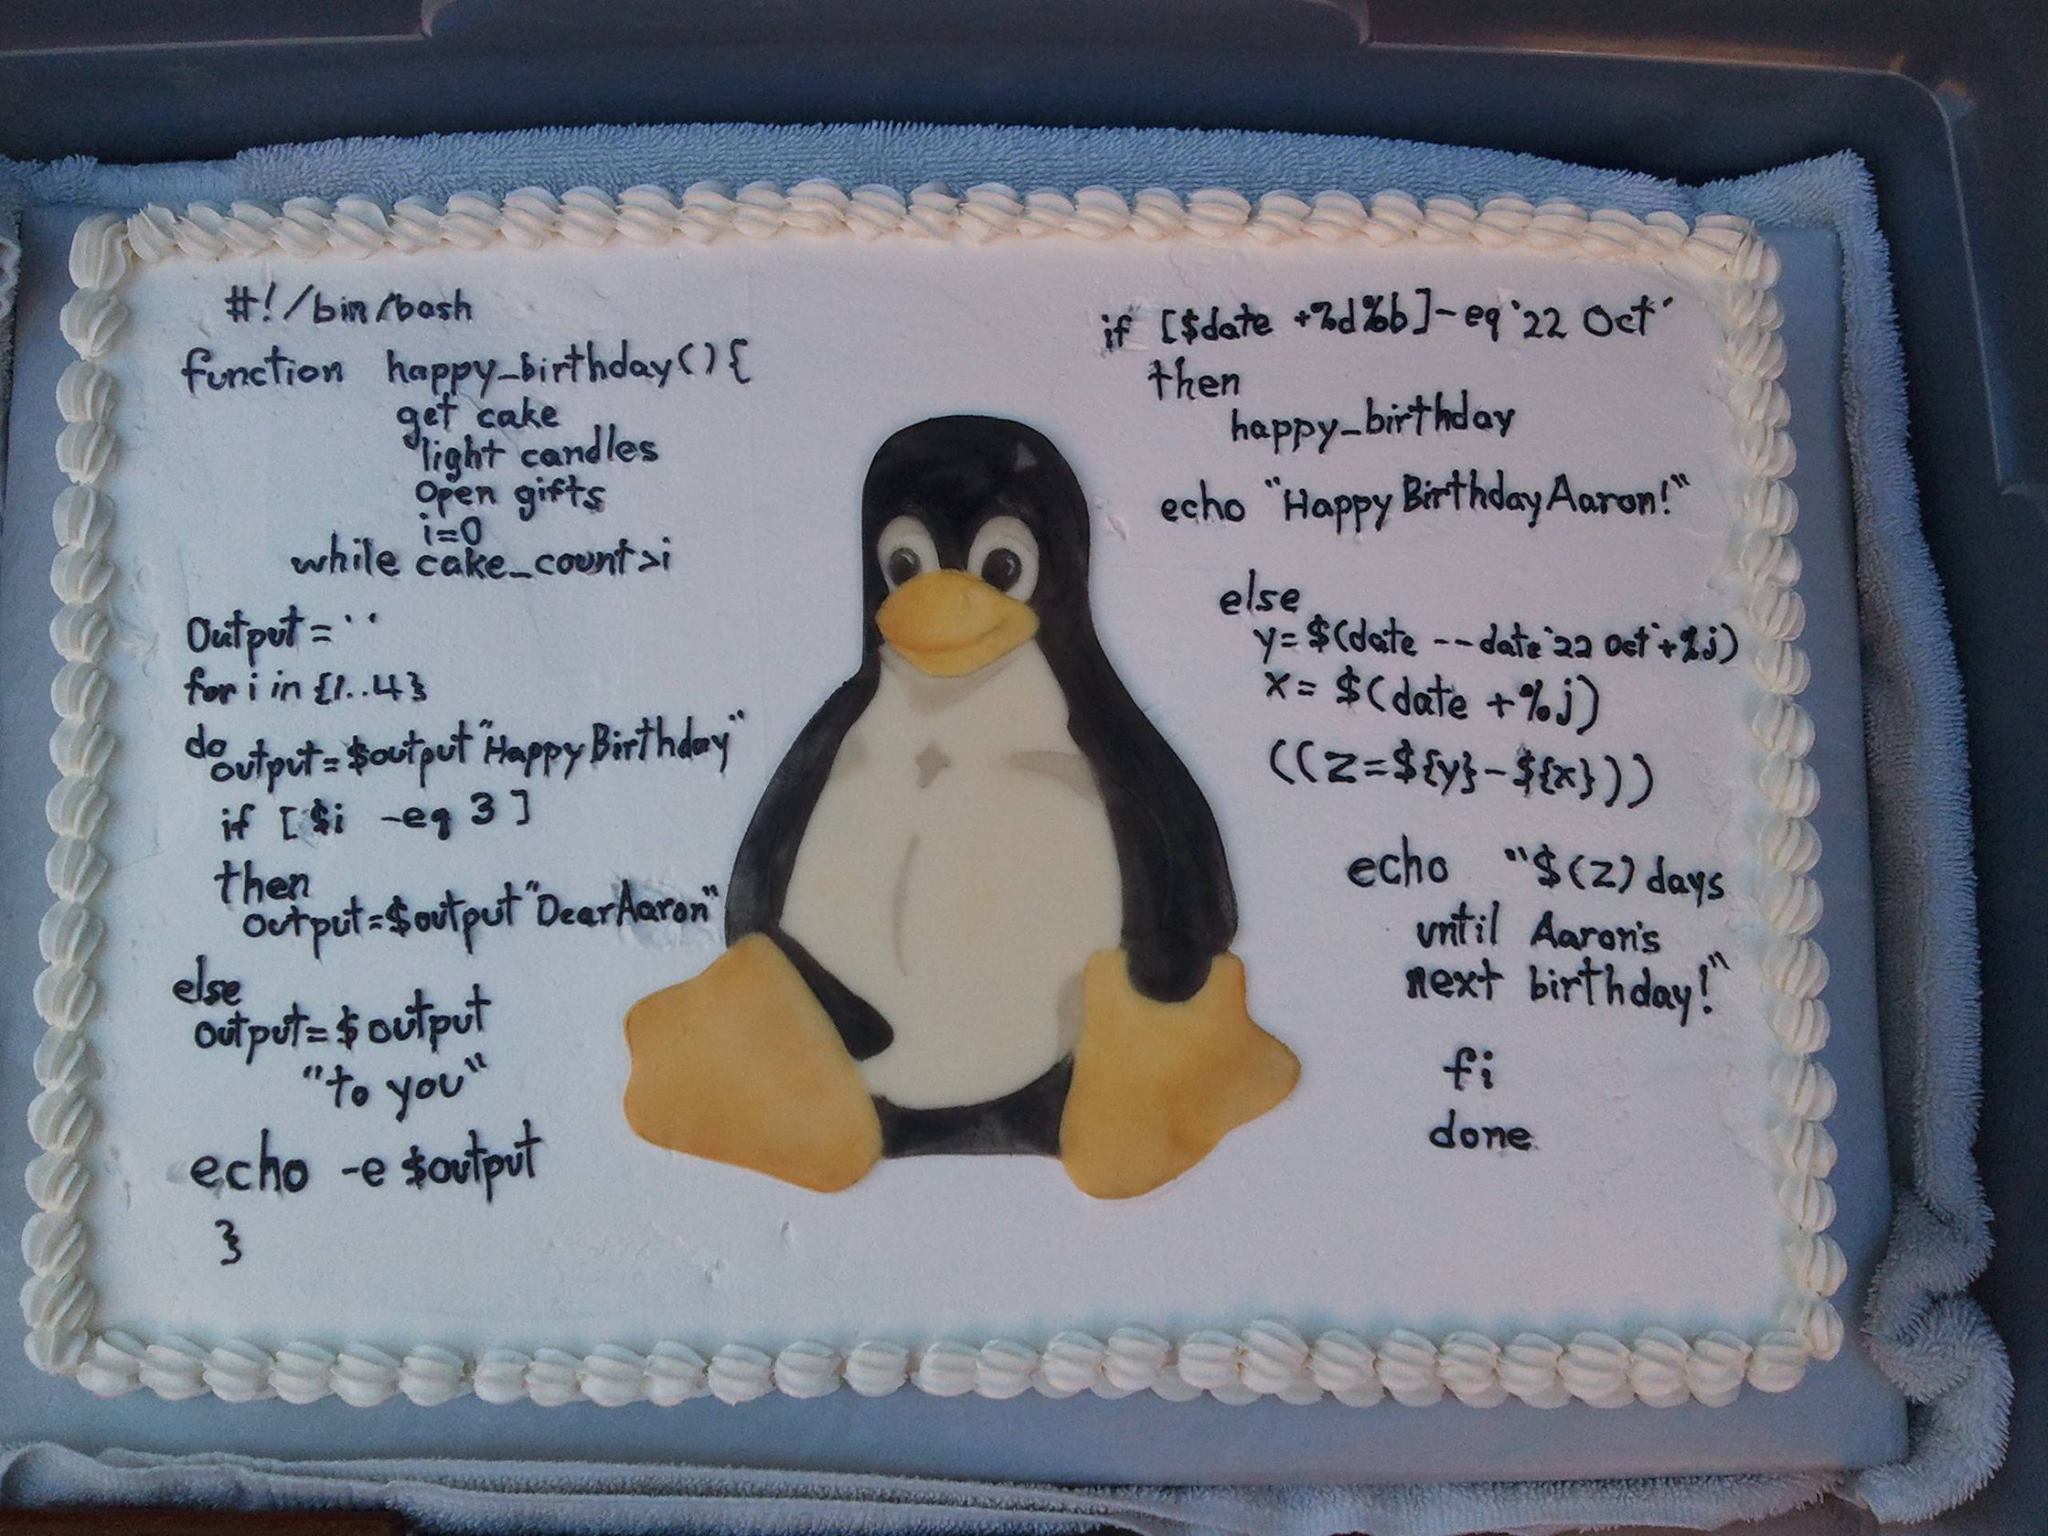 #!/bin/bash
function happy_birthday(){
get cake
light candles
open gifts
i=0
while cake_count>i
Output=``
for i in {1..4}
do
output=$output"Happy Birthday"
if [ $i -eq 3 ]
then
output=$output"Dear Aaron"
else
output=$output
"to you"
echo -e $output
}
if [$date +%d%b]-eq`22 Oct´
then
happy_birthday
echo "Happy Birthday Aaron!"
else
y=$(date --date`22 Oct`+%j)
x=$(date +%j)
((z=${y}-${x}))
echo "$(z) days
until Aaron's
next birthday!"
fi
done